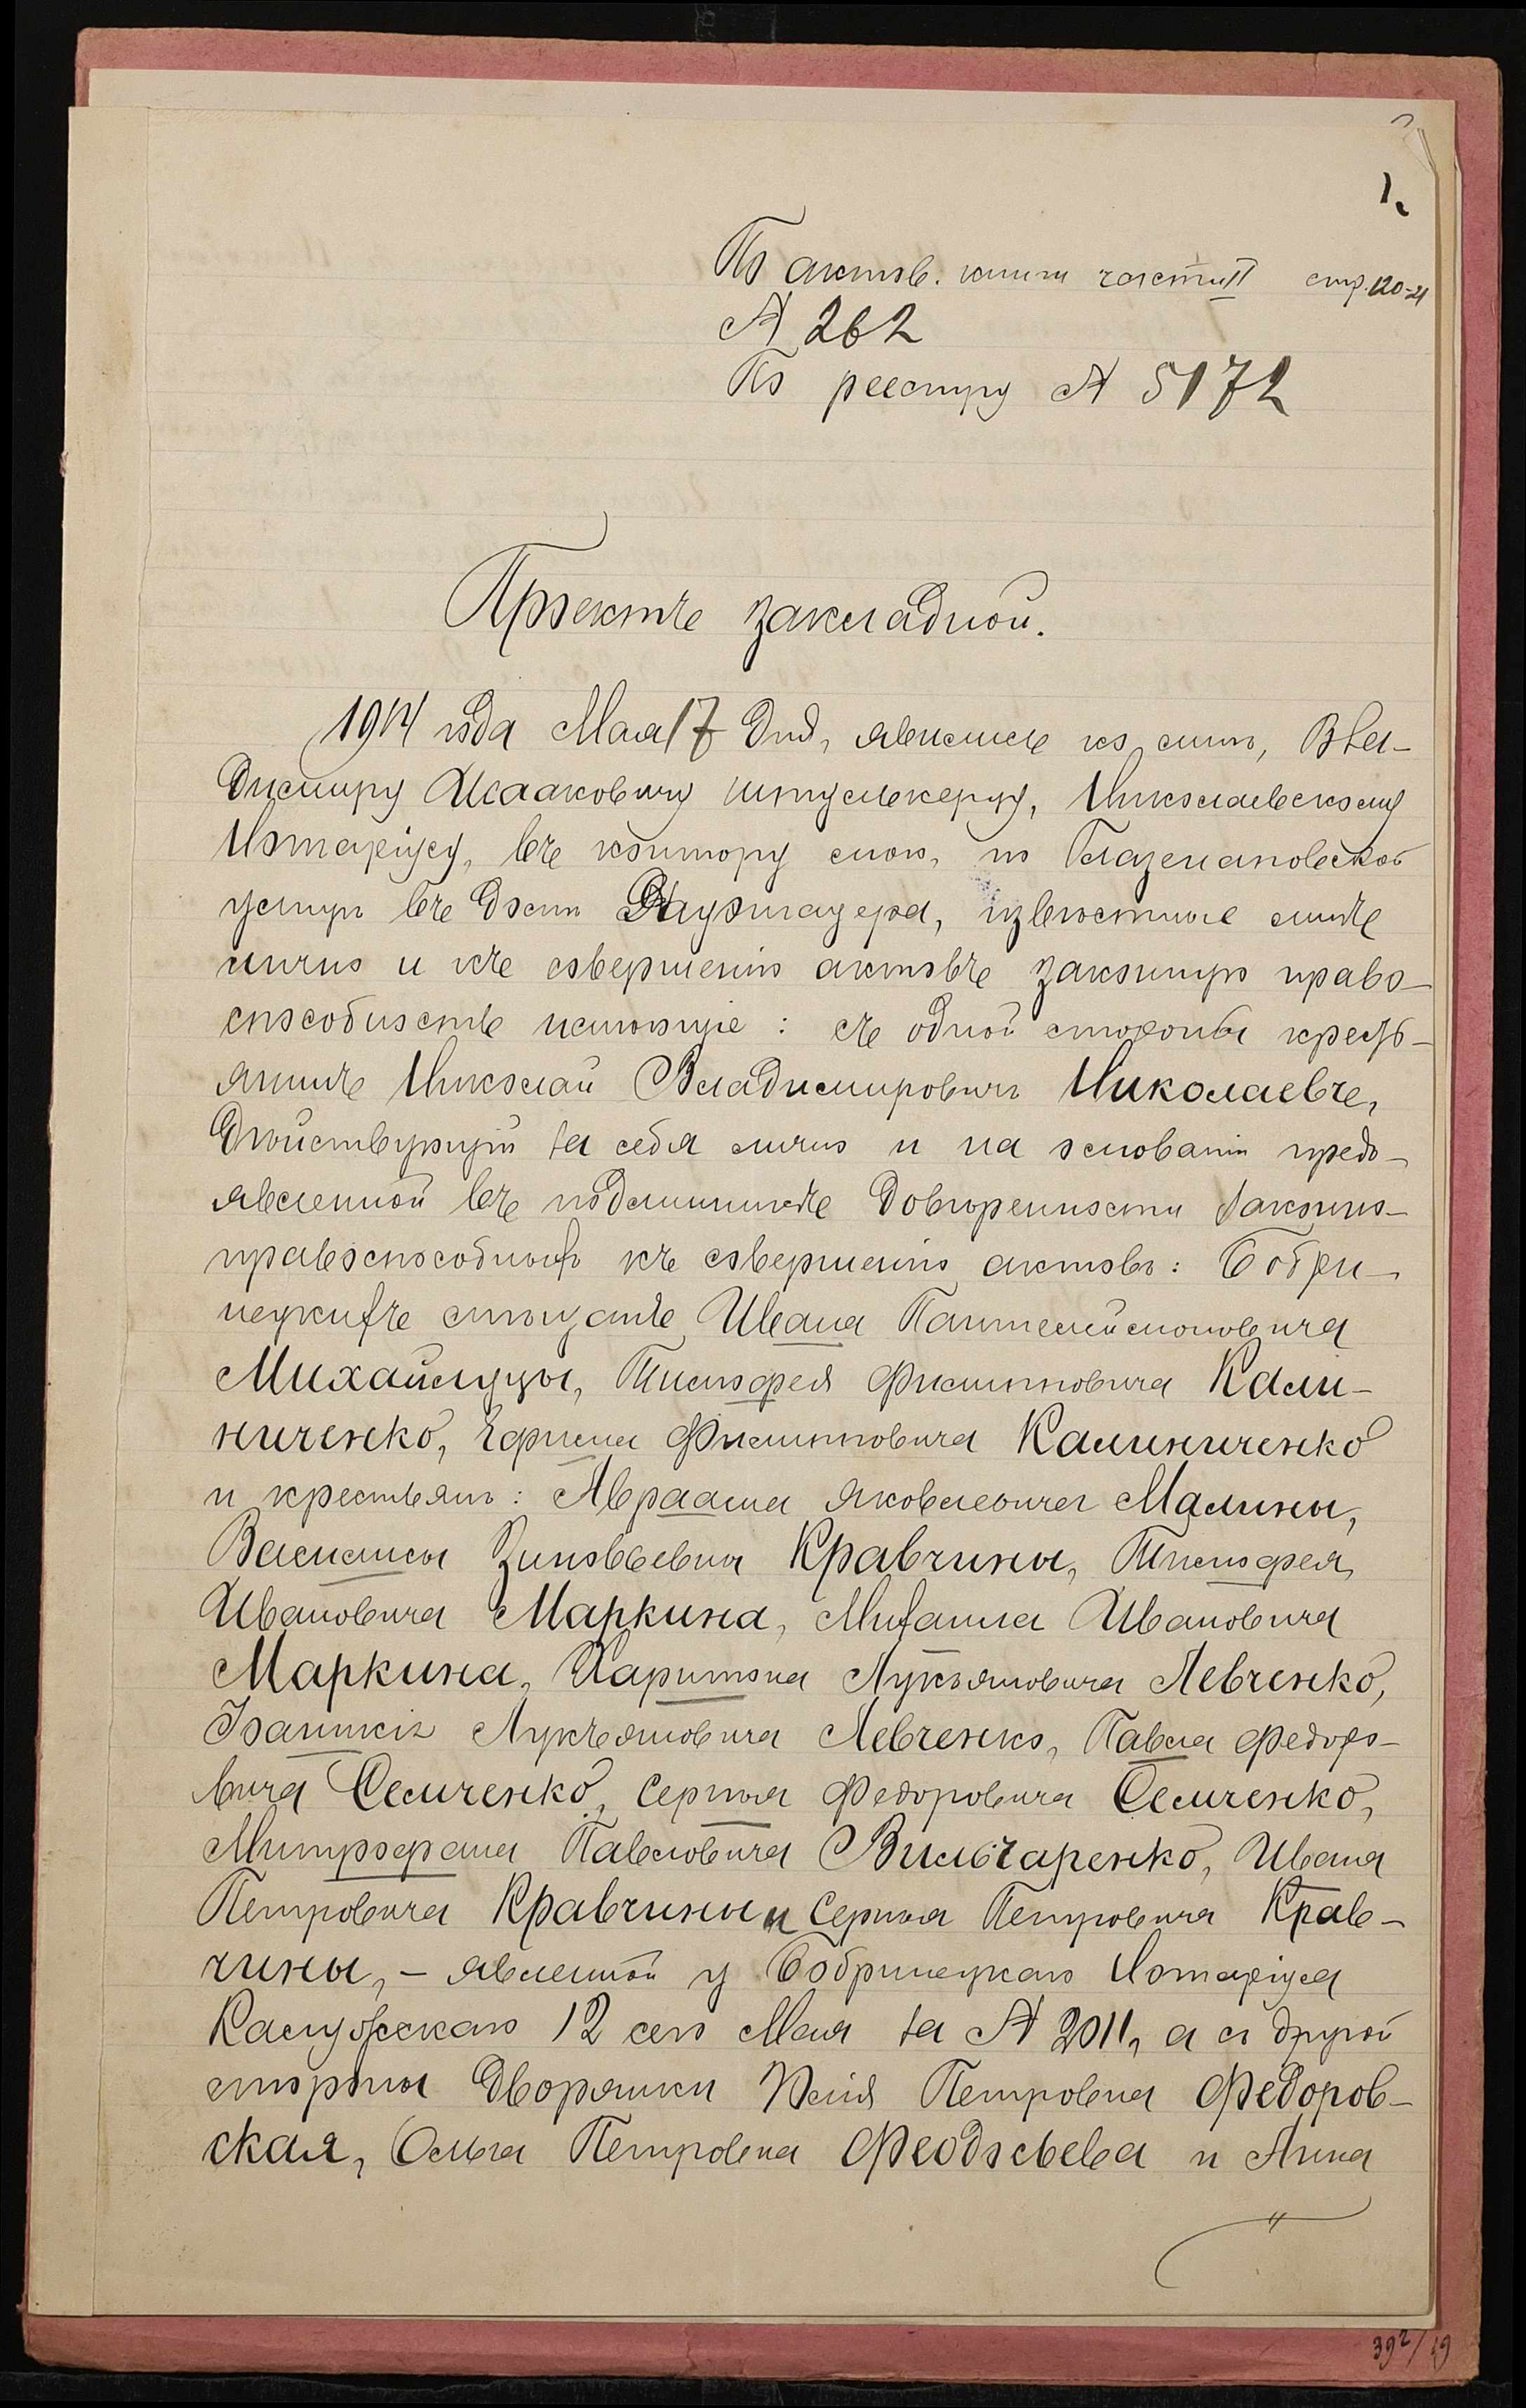 1.
По актов. книги части II стр. 120-21
№ 262
По реестру № 5172
Проектъ закладной.
1914 года Мая 17 дня, явились ко мнѣ, Вла-
димиру Исааковичу Штулькерцу, Николаевскому
Нотаріусу, въ контору мою, по Глазенаповской
улицѣ въ домѣ, извѣстные мнѣ
лично и къ совершенію актовъ законную право-
способность имѣющіе: съ одной стороны кресть-
янинъ Николай Владимировичъ Николаевъ,
дѣйствующій за себя лично и на основаніи предъ-
явленной въ подлинникѣ довѣренности законно-
правоспособныхъ къ совершенію актовъ: Бобри-
нецкихъ мѣщанъ Ивана Пантелеймоновича
Михайлуцы, Тимофея Филипповича Кали-
ниченко, Ефима Филипповича Калиниченко
и крестьянъ: Авраама Яковлевича Малины,
Василисы Зиновьевны Кравчины, Тимофея
Ивановича Маркина, Михаила Ивановича
Маркина, Харитона Лукьяновича Левченко,
Іоанникія Лукьяновича Левченко, Павла Федоро-
вича Семченко, Сергѣя Федоровича Семченко,
Митрофана Павловича Вильчаренко, Ивана
Петровича Кравчины и Сергѣя Петровича Крав-
чины, - явленной у Бобринецкаго Нотаріуса
Калужскаго 12 сего Мая за № 2011, а съ другой
стороны Дворянки Юлія Петровна Федоров-
ская, Ольга Петровна Феодосьева и Анна
392/19